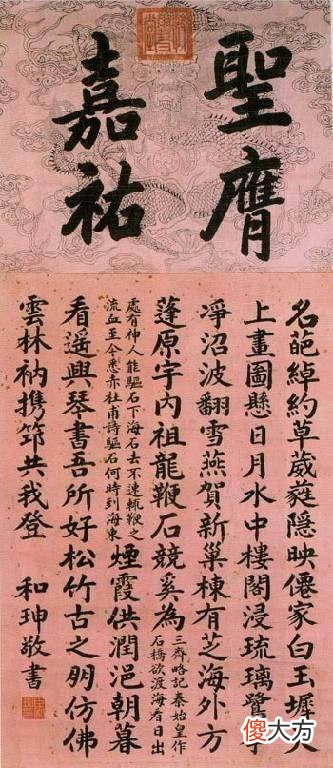 聖膺
嘉祐
名葩綽約草葳蕤隱映僊家白玉墀天
上畫圖懸日月水中樓閣浸琉璃鷺
凈沼波翻雪燕賀新巢棟有芝海外方
蓬原宇內祖龍鞭石競奚為三齊略記秦始皇作
石橋欲渡海看日出
處有神人能驅石下海石去不速輒鞭之
流血至今悉赤杜甫詩驅石何時到海東
煙霞供潤浥朝暮
看遙興琴書吾所好松竹古之朋仿佛
雲林衲攜筇共我登
和珅敬書
傻大方